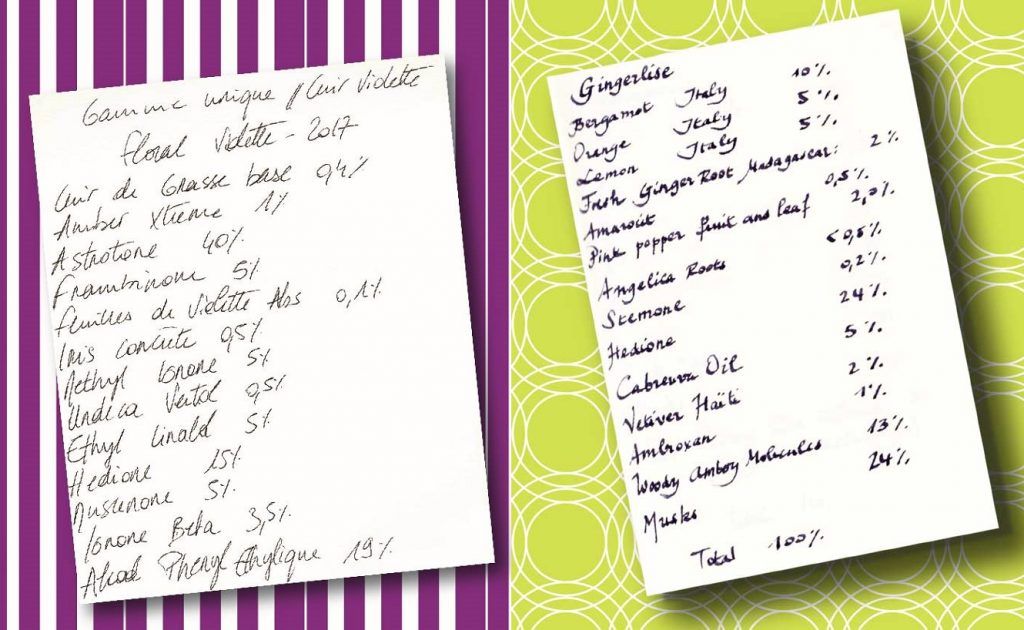 Gamme unique // Cuir Violette
Floral Violette - 2017
Cuir de Grasse base 0,4%
Amber Xtreme 1%
Astrotone 40%
Frambinone 5%
Feuilles de Violette Abs 0,1%
Iris concrète 0,5%
Methyl Ionone 5%
Undeca Vertol 0,5%
Ethyl Linalol 5%
Hedione 15%
Muscenone 5%
Ionone Beta 3,5%
Alcool Phenyl Ethylique 19%
Gingerlise
Bergamot Italy 10%
Orange Italy 5%
Lemon Italy 5%
Fresh Ginger Root Madagascar: 2%
Amarocit 0,5%
Pink popper fruit and leaf 2,0%
Angelica Roots <0,5%
Stemone 0,2%
Hedione 24%
Cabreuva Oil 5%
Vetiver Haïti 2%
Ambroxan 1%
Woody Amboy Molecules 13%
Musks 24%
Total 100%